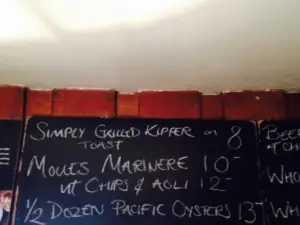 SIMPLY GRILLED KIPPER on 8
TOAST
MOULES MARINERE 10-
WT CHIPS & AOLI 12-
1/2 DOZEN PACIFIC OYSTERS 13-
E
BEE
WT CH
WHO
WH